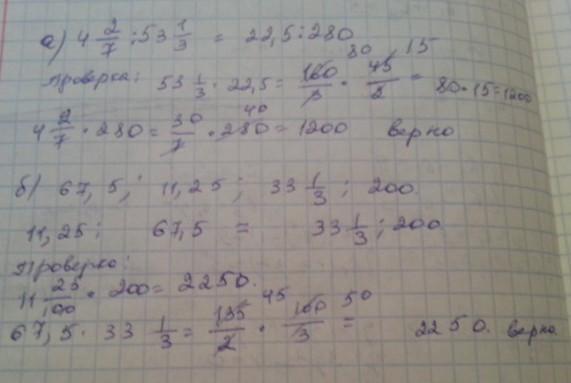 а) 4 2/7 : 53 1/3 = 22,5 : 280
проверка: 53 1/3 · 22,5 = 160/3 · 45/2 = 80 · 15 = 1200
80 15
4 2/7 · 280 = 30/7 · 280 = 1200 верно
40
б) 67,5; 11,25; 33 1/3; 200.
11,25 : 67,5 = 33 1/3 : 200
Проверка:
11 25/100 · 200 = 2250.
67,5 · 33 1/3 = 135/2 · 100/3 = 2250. верно
45 50